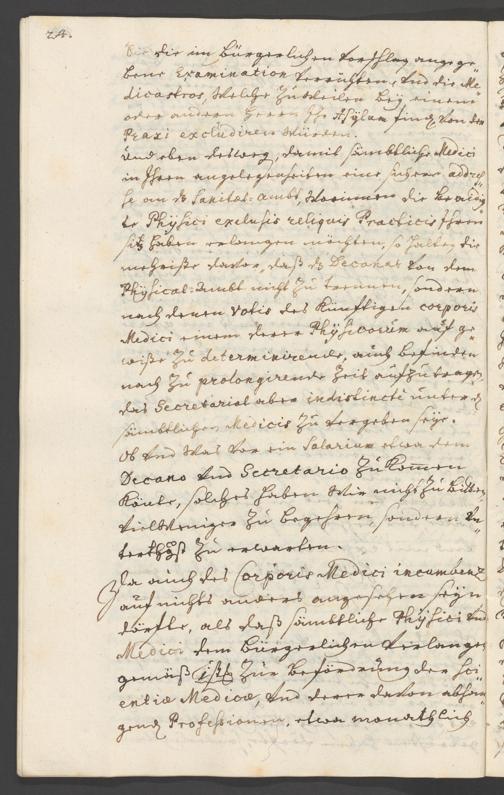 24.
die im Bürgerlichen Vorschlag angege-
bene Examination verrichten, und die Me-
dicastros, welche zuweilen bey einem
oder andern Herrn Ihr Asylum find, von der
Praxi excludiren würden.
Und eben deswegen, damit sämbtliche Medici
in Ihren angelegenheiten eine sichere addres-
se an dz Sanitæt-ambt, worinnen die beaidig-
te Physici exclusis reliquis Practicis Ihren
sitz haben erlangen möchten, so halten die
mehriste davor, daß dz Decanat von dem
Physicat-Ambt nicht zu trennen, sondern
nach denen Votis des künfftigen corporis
Medici einem derer Physicorum auf ge-
wiße zu determinirende, auch befinden
nach zu prolongirende Zeit aufzutragen,
das Secretariat aber indistinctè unter
sämbtlichen Medicis zu vergeben seye.
Ob und was vor ein Salarium etwa dem
Decano und Secretario zukomen
könte, solches haben wir nicht zu bitten
vielweniger zu begehren, sondern Un-
terthgst zu erwarten.
Da auch des Corporis Medici incumbenz
auf nichts anders angesehen seyn
dörffte, als daß sämbtliche Physici und
Medici dem Bürgerlichen Verlangen
gemäß zur beförderung der Sci-
entiæ Medicæ, und derer davon abhan-
gend Professionen, etwa monathlich